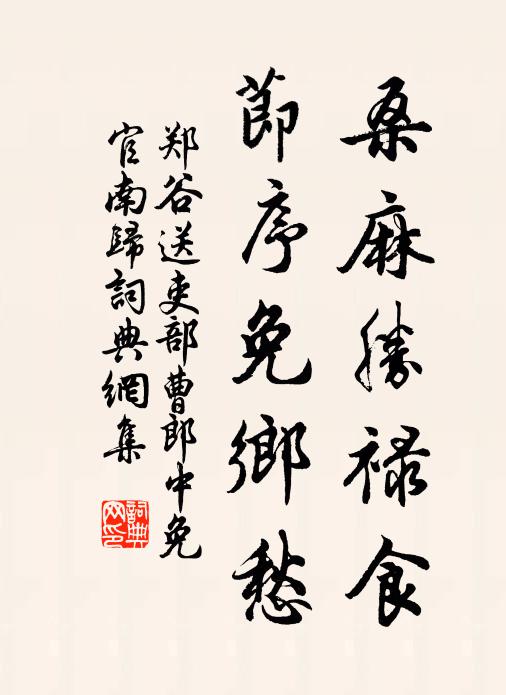 桑麻勝禄食
節序免鄉愁
郑谷送吏部曹郎中免
官南歸詞典網集
詞典网印